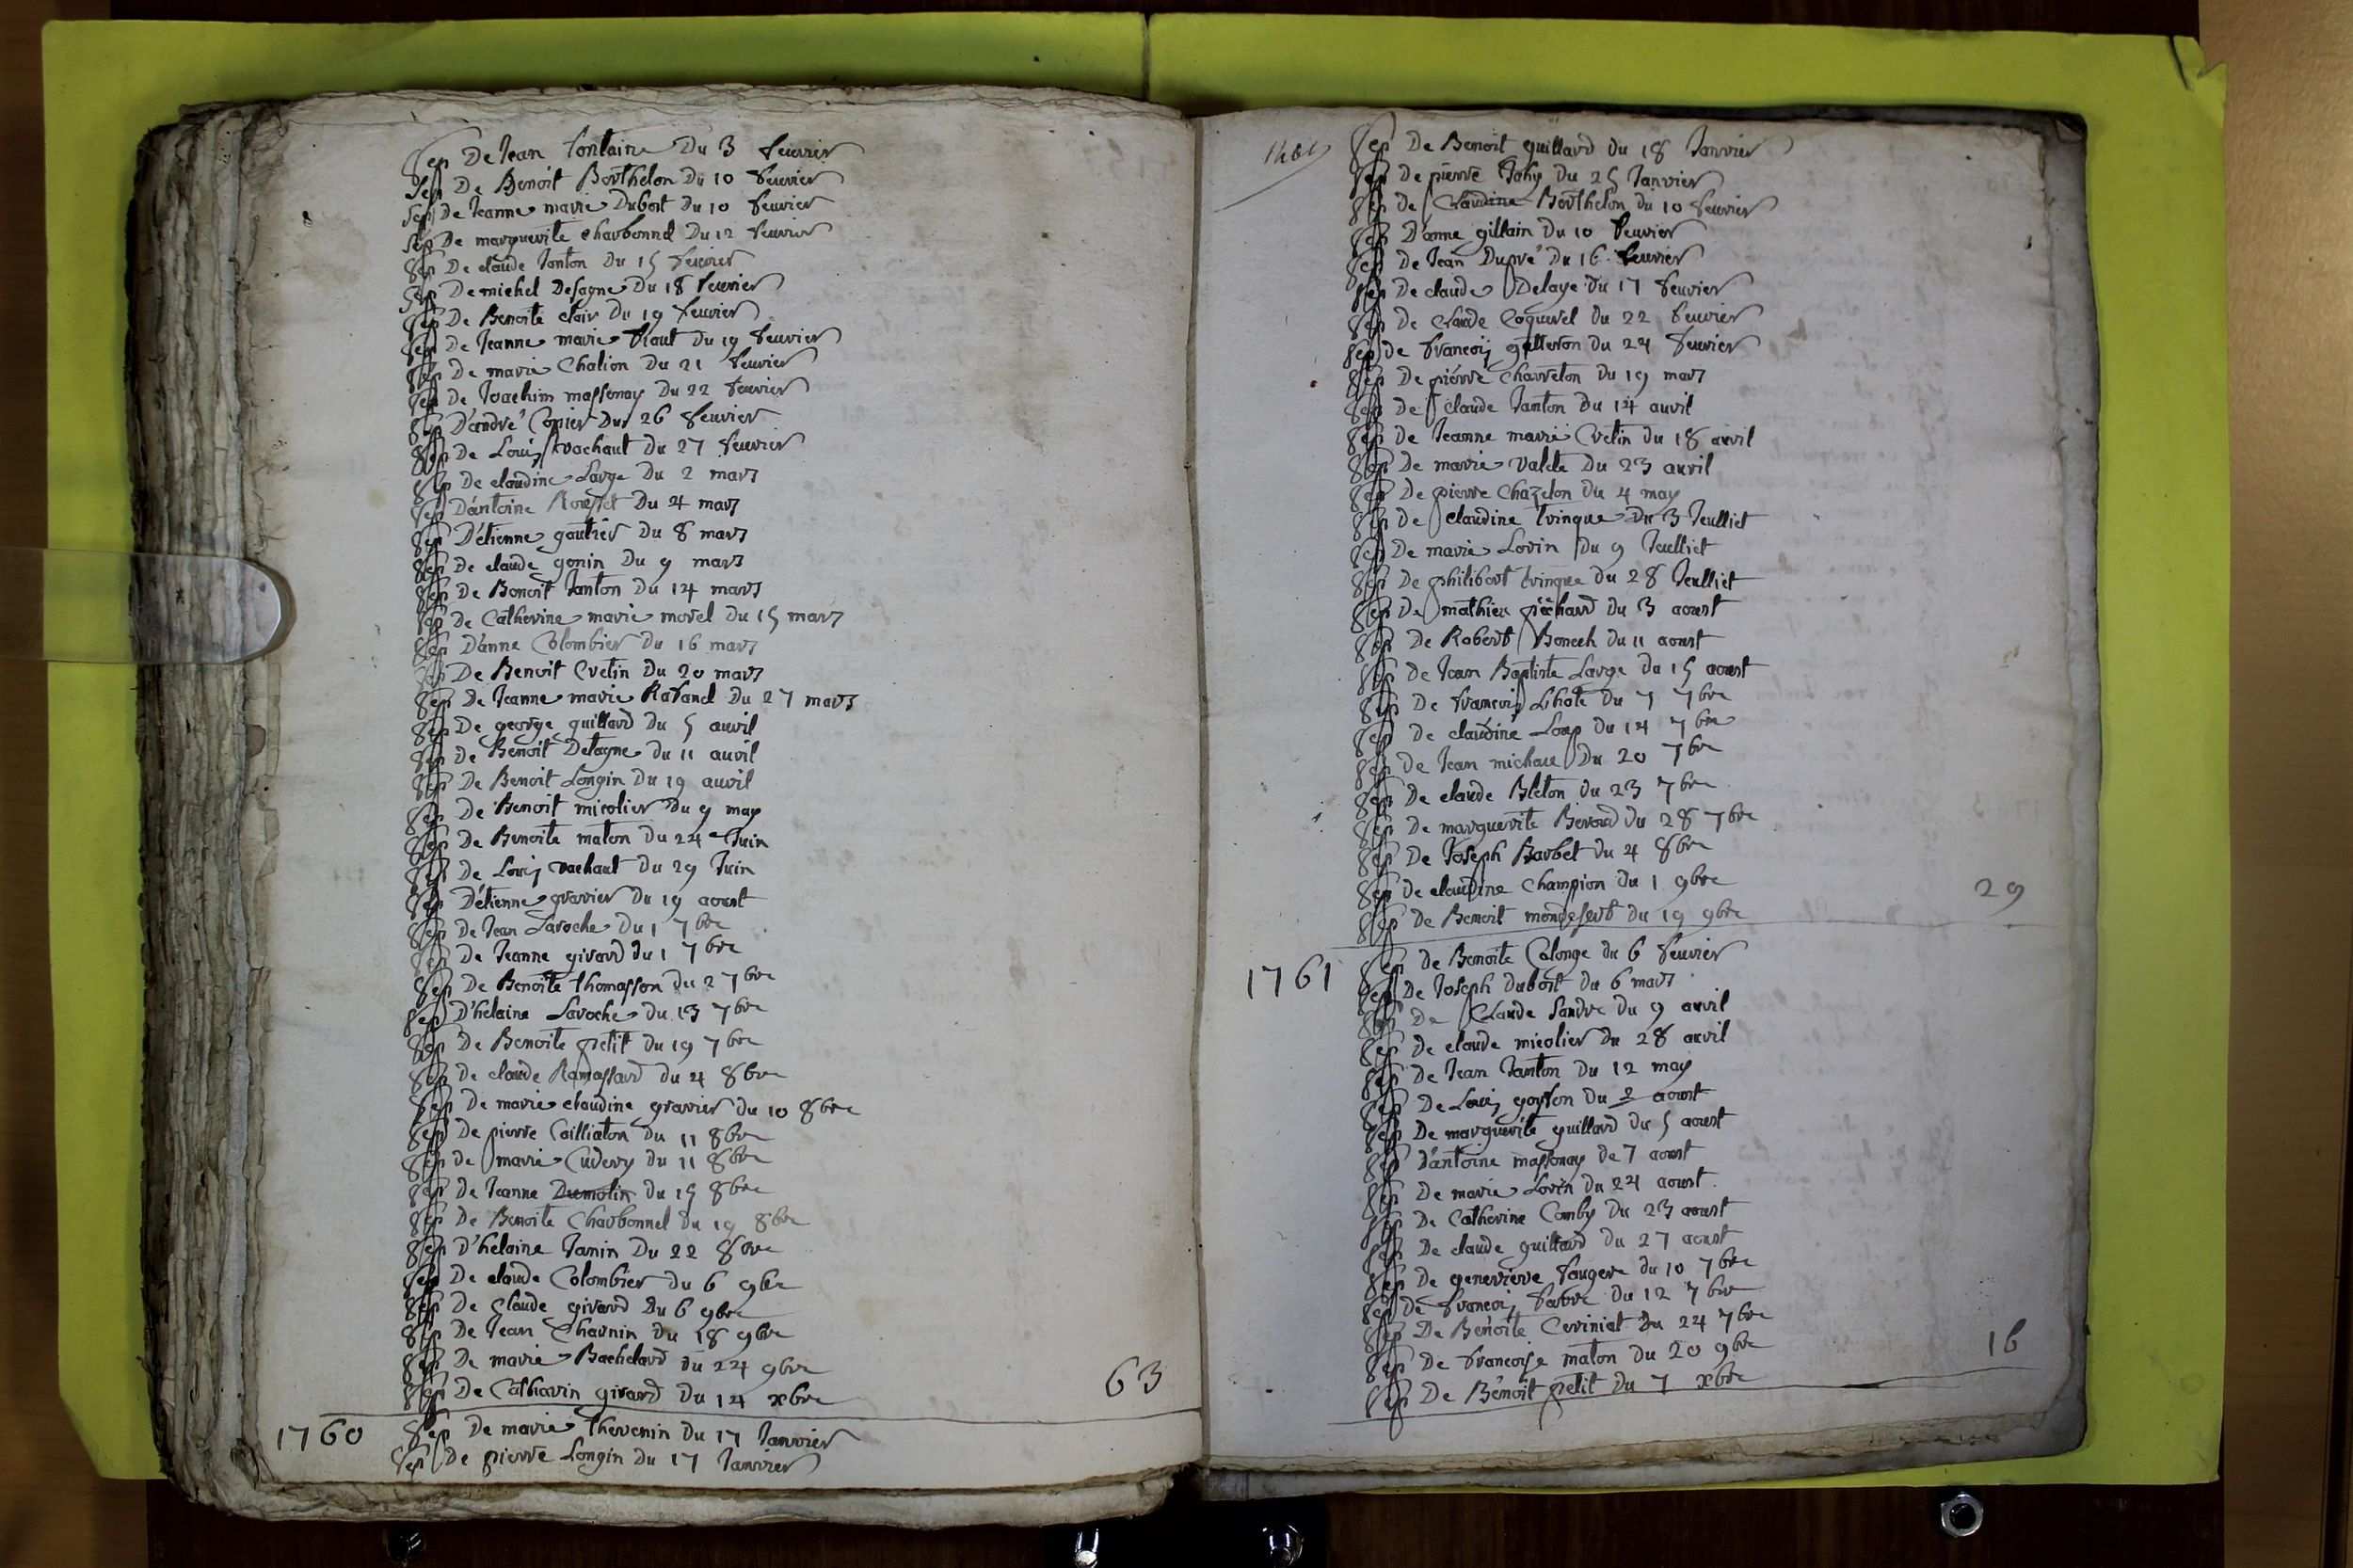 Sep De Jean fontaine Du 3 feuvrier
Sep De Benoit Berthelon Du 10 feuvrier
Sep de Jeanne marie Dubost du 10 feuvrier
Sep De marguerite charbonnel Du 12 feuvrier
Sep De claude Janton Du 15 feuvrier
Sep De michel Desagne Du 18 feuvrier
Sep De Benoite clair Du 19 feuvrier
Sep De Jeanne marie du 19 feuvrier
Sep De marie Chalion Du 21 feuvrier
Sep de Joachim massonay Du 22 feuvrier
Sep D'andré Copier Du 26 feuvrier
Sep De Louis vachaut Du 27 feuvrier
Sep De claudine Large Du 2 mars
Sep D'antoine Rousset Du 4 mars
Sep D'étienne gautier Du 8 mars
Sep De claude gonin Du 9 mars
Sep De Benoit Janton Du 14 mars
Sep De Catherine marie morel du 15 mars
Sep D'anne Colombier Du 16 mars
Sep De Benoit Cretin Du 20 mars
Sep De Jeanne marie Ravanel Du 27 mars
Sep De george guillard du 5 auril
Sep de Benoit Delagne du 11 auril
Sep De Benoit Longin Du 19 auril
Sep De Benoit micolier Du 9 may
Sep De Benoite maton Du 24 Juin
Sep de Louis vachaut Du 29 Juin
Sep D'étienne gravier du 19 aoust
Sep De Jean Laroche Du 1 7bre
Sep De Jeanne girard du 1 7bre
Sep De Benoite thomasson du 2 7bre
Sep D'helaine Laroche du 13 7bre
Sep De Benoite petit du 19 7bre
Sep De claude Ramassard du 4 8bre
Sep De marie claudine gravier du 10 8bre
Sep De pierre Cailliaton Du 11 8bre
Sep de marie Cudery du 11 8bre
Sep De Jeanne Dumolin du 15 8bre
Sep De Benoite Charbonnel Du 19 8bre
Sep D'helaine Janin Du 22 8bre
Sep De claude Colombier du 6 9bre
Sep De Claude girard Du 6 9bre
Sep De Jean Charnin Du 18 9bre
Sep De marie Bachelard du 24 9bre
Sep De Catharin girard Du 14 xbre
63
1760 Sep De marie thevenin Du 17 Janvier
Sep De pierre Longin Du 17 Janvier
Sep De Benoit guillard du 18 Janvier
Sep De pierre du 25 Janvier
Sep De Claudine Berthelon du 10 feuvrier
Sep D'anne gillain Du 10 feuvrier
Sep De Jean Dupré Du 16 feuvrier
Sep De claude Delaye Du 17 feuvrier
Sep De Claude Coquerel Du 22 feuvrier
Sep de francois Du 24 feuvrier
Sep De pierre Charreton Du 19 mars
Sep De claude Janton Du 14 auril
Sep De Jeanne marie Cretin du 18 auril
Sep De marie valete Du 23 auril
Sep De pierre Chazelon du 4 may
Sep De claudine tringue Du 3 Jeulliet
Sep De marie Lorin Du 9 Jeulliet
Sep De philibert tringue Du 28 Jeulliet
Sep De mathieu péchard du 3 aoust
Sep De Robert Du 11 aoust
Sep De Jean Baptiste Large du 15 aoust
Sep De francois Lhote Du 7 7bre
Sep De claudine Loup du 14 7bre
Sep De Jean michau Du 20 7bre
Sep De claude Bleton Du 23 7bre
Sep De marguerite Berard du 28 7bre
Sep De Joseph Barbet Du 4 8bre
Sep De claudine Champion Du 1 9bre
Sep De Benoit mondesert du 19 9bre
29
1761 Sep De Benoite Calonge du 6 feuvrier
Sep De Joseph dubost du 6 mars
Sep De Claude Sandre Du 9 auril
Sep De claude micolier Du 28 auril
Sep De Jean Janton Du 12 may
Sep De Louis goyson Du 2 aoust
Sep De marguerite guillard du 5 aoust
Sep D'antoine massonay de 7 aoust
Sep De marie Lorin du 24 aoust
Sep De Catherine Comby Du 23 aoust
Sep De claude guillard du 27 aoust
Sep De genevieve faugere du 10 7bre
Sep De francois favre Du 12 7bre
Sep De Benoite Ceriniat Du 24 7bre
Sep De francoise maton Du 20 9bre
Sep De Benoit petit Du 7 xbre
16